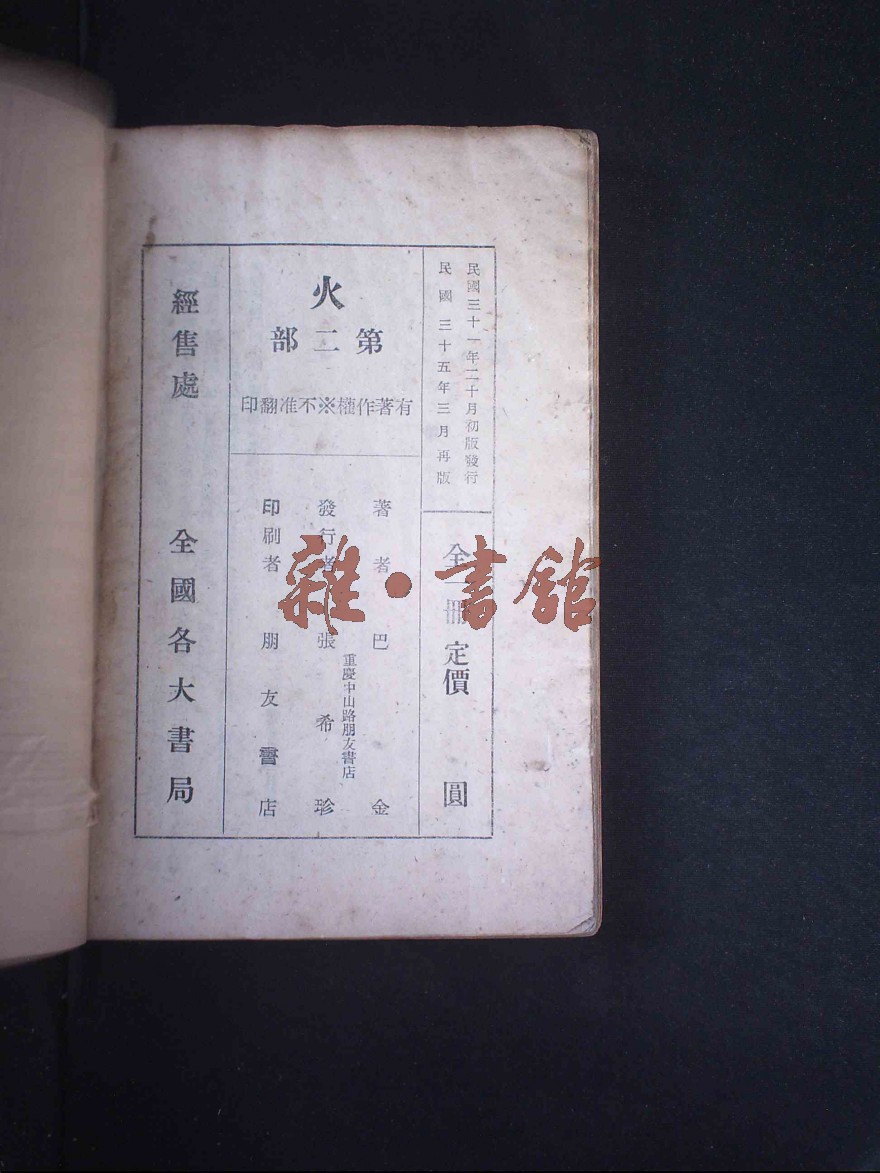 民國三十一年二十月初版發行
民國三十五年三月再版
全一冊定價　圓
火
第二部
有著作權※不准翻印
著者　巴金
重慶中山路朋友書店
發行者　張希珍
印刷者　朋友書店
經售處　全國各大書局
雜·書館